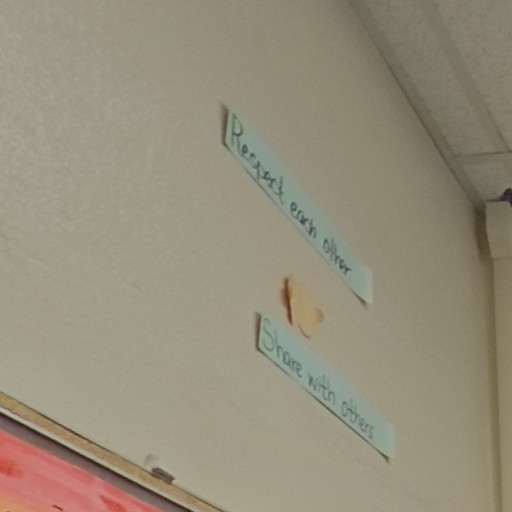 Respect each other
Share with others